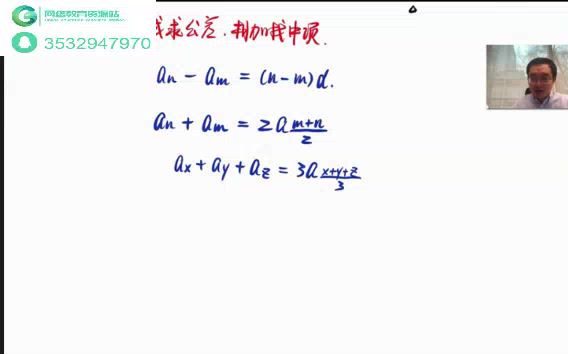 网络教育资源站
3532947970
求公差.相加找中项.
an - am = (n-m)d.
an + am = 2a m+n/2
ax + ay + az = 3a x+y+z/3